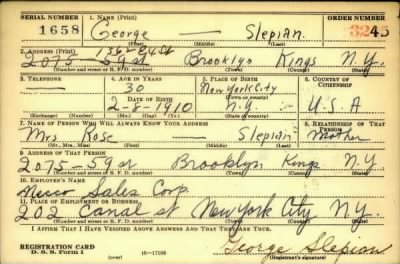 SERIAL NUMBER 1. NAME (Print) ORDER NUMBER
1658 George — Slepian. 3245
(First) (Middle) (Last)
2. ADDRESS (Print)
2075-59 st Brooklyn Kings N.Y.
(Number and street or R. F. D. number) (Town) (County) (State)
3. TELEPHONE 4. AGE IN YEARS 5. PLACE OF BIRTH 6. COUNTRY OF CITIZENSHIP
— 30 New York City
DATE OF BIRTH (Town or county)
2-8-1910 N.Y. U.S.A
(Exchange) (No.) (Mo.) (Day) (Yr.) (State or country)
7. NAME OF PERSON WHO WILL ALWAYS KNOW YOUR ADDRESS 8. RELATIONSHIP OF THAT PERSON
Mrs Rose — Slepian Mother
(Mr., Mrs., Miss) (First) (Middle) (Last)
9. ADDRESS OF THAT PERSON
2075-59 st Brooklyn Kings N.Y.
(Number and street or R. F. D. number) (Town) (County) (State)
10. EMPLOYER'S NAME
Sales Corp.
11. PLACE OF EMPLOYMENT OR BUSINESS
202 Canal st New York City N.Y.
(Number and street or R. F. D. number) (Town) (County) (State)
I AFFIRM THAT I HAVE VERIFIED ABOVE ANSWERS AND THAT THEY ARE TRUE.
REGISTRATION CARD George Slepian
D. S. S. Form 1 (over) 16-17105 (Registrant's signature)